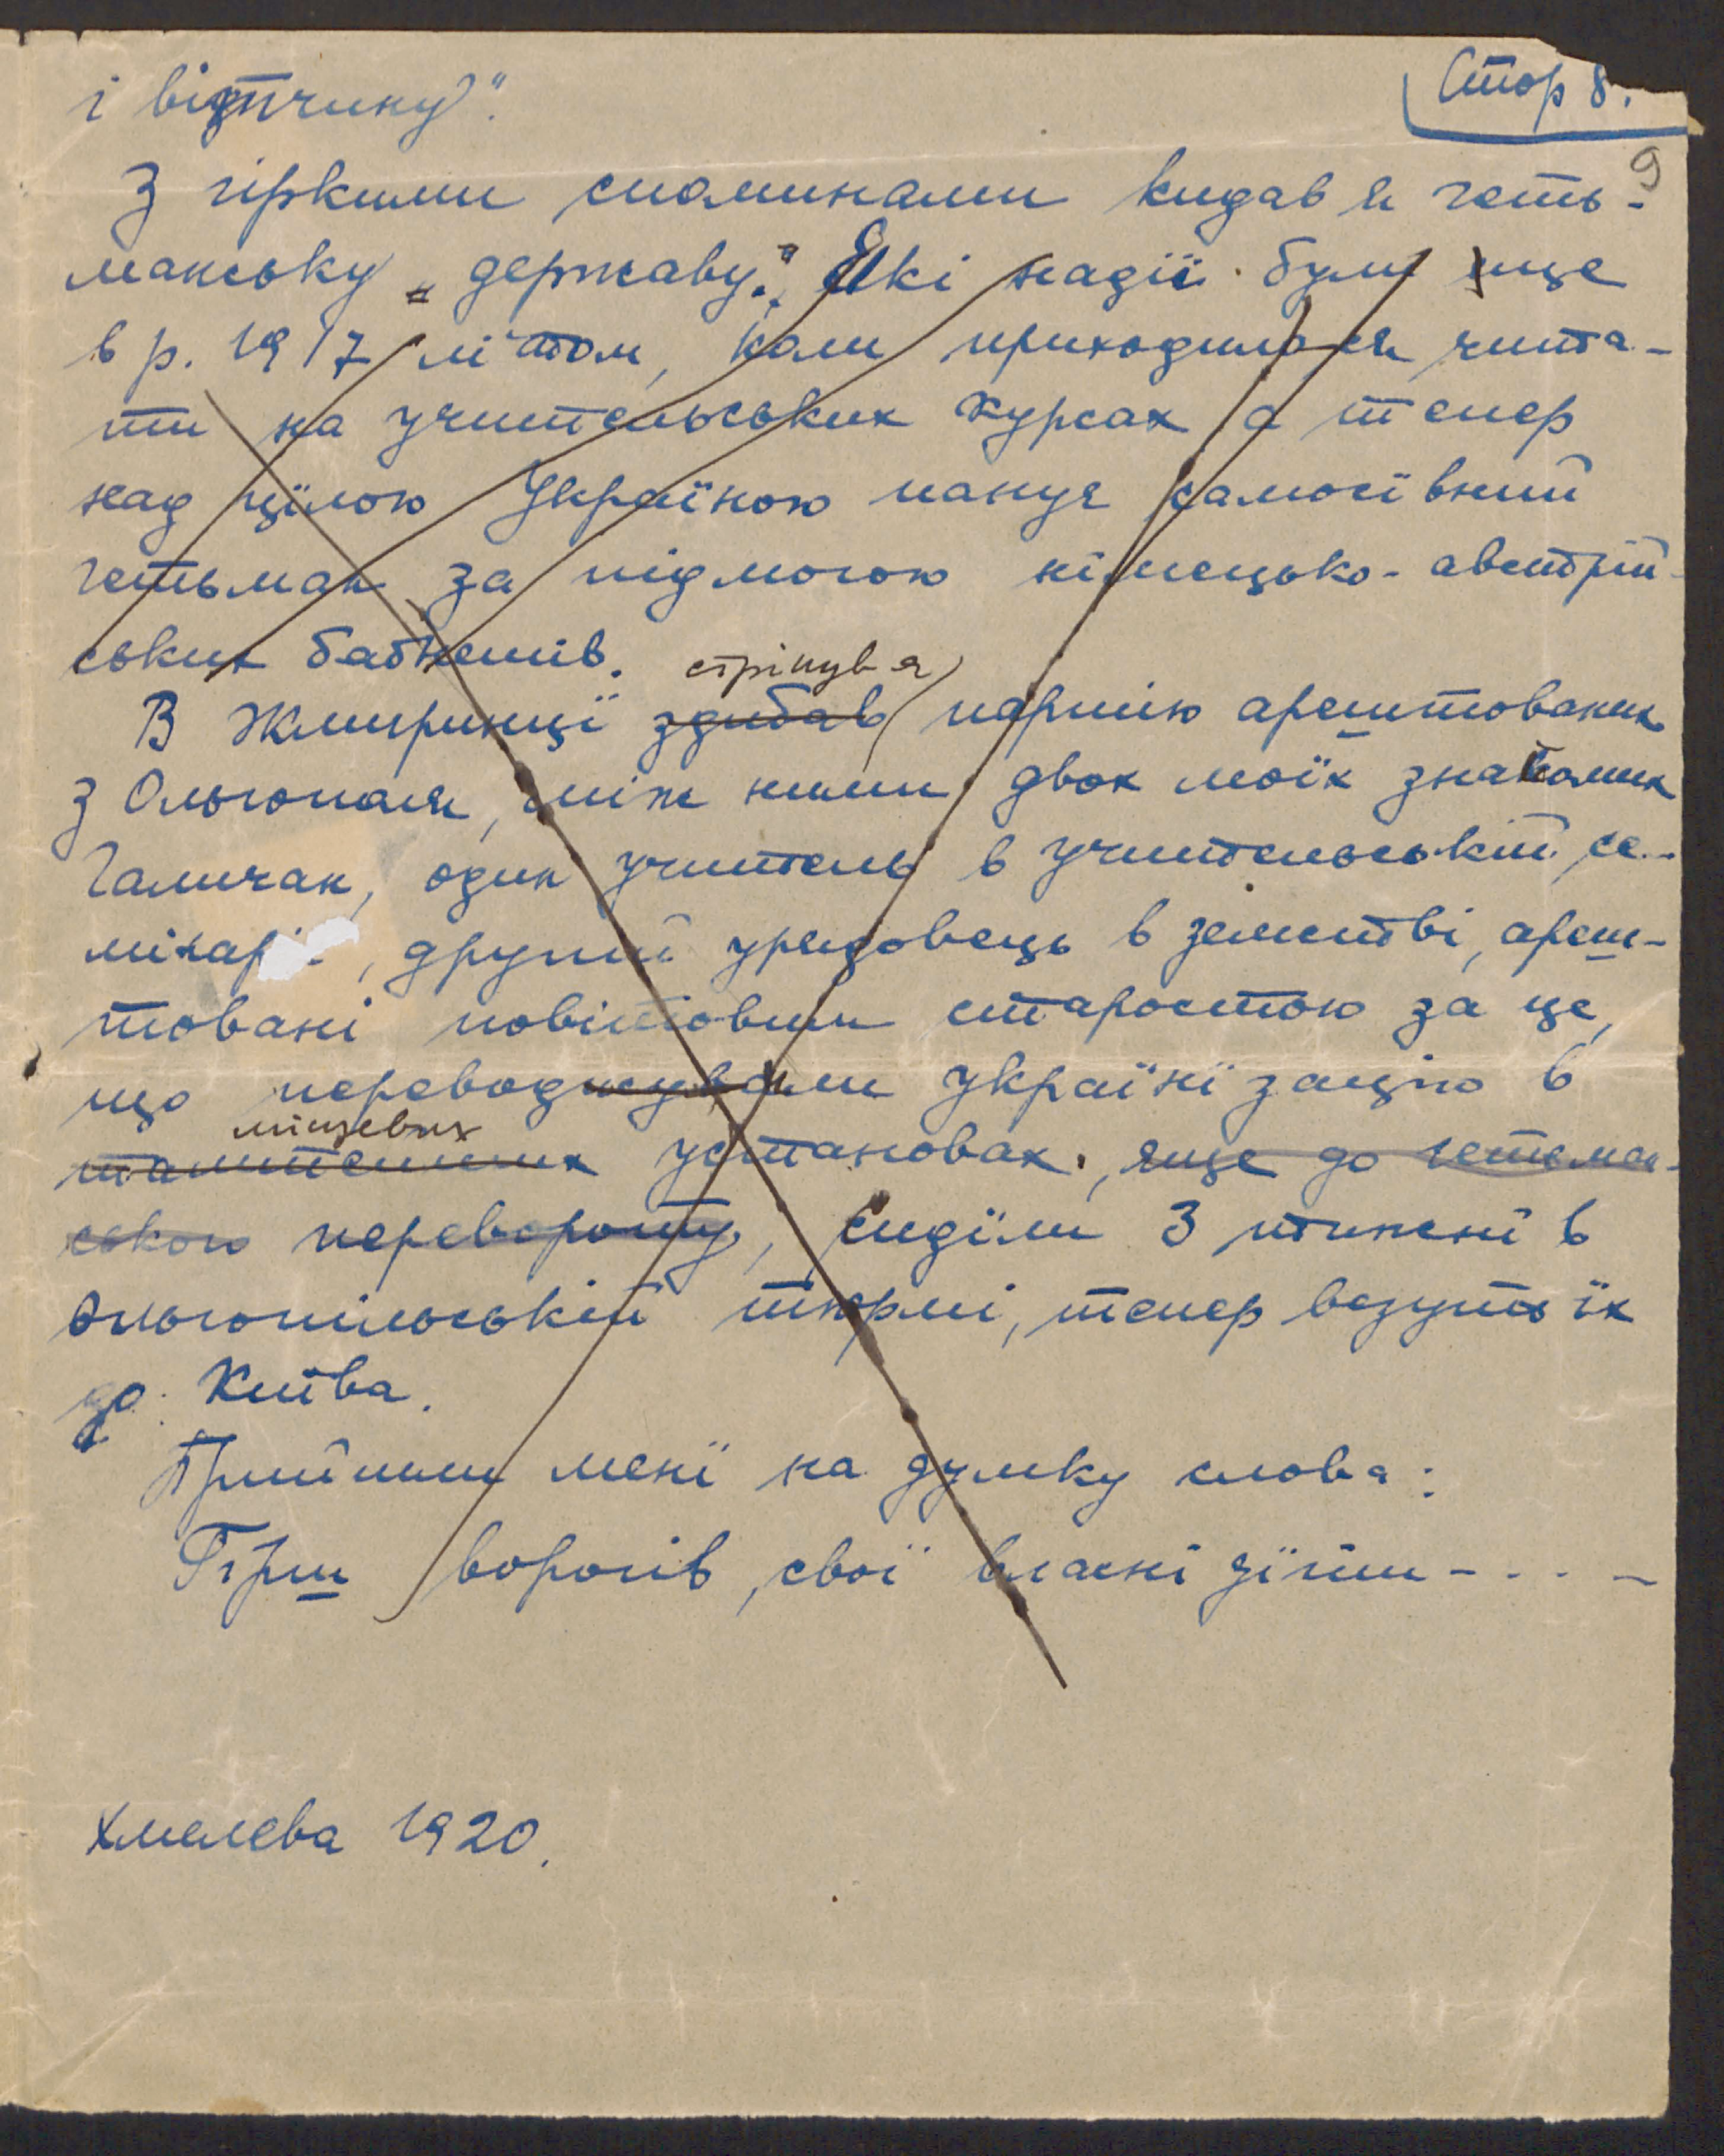 Стор 8.
і відпочинку".
9
З гіркими споминами кидав я геть-
манську „державу". Які надії були ще
в р. 1917 літом, коли приходилося чита-
ти на учительських курсах а тепер
над цілою Україною панує самосівний
гетьман за підмогою німецько-австрій-
ських багнетів.
стрінув я
В Жмиринці здибав партію арештованих
з Ольгополя, між ними двох моїх знакомих
Галичан, один учитель в учительській се-
мінарії, другий урядовець в земстві, ареш-
товані повітовим старостою за це,
що переводжували українїзацію в
місцевих
тамтешних установах, яще до гетьман-
ського перевороту, сиділи 3 тижні в
ольгопільській тюрмі, тепер везуть їх
до Київа.
Прийшли мені на думку слова:
Гірш ворогів, свої власні діти - . . . -
Хмелева 1920.